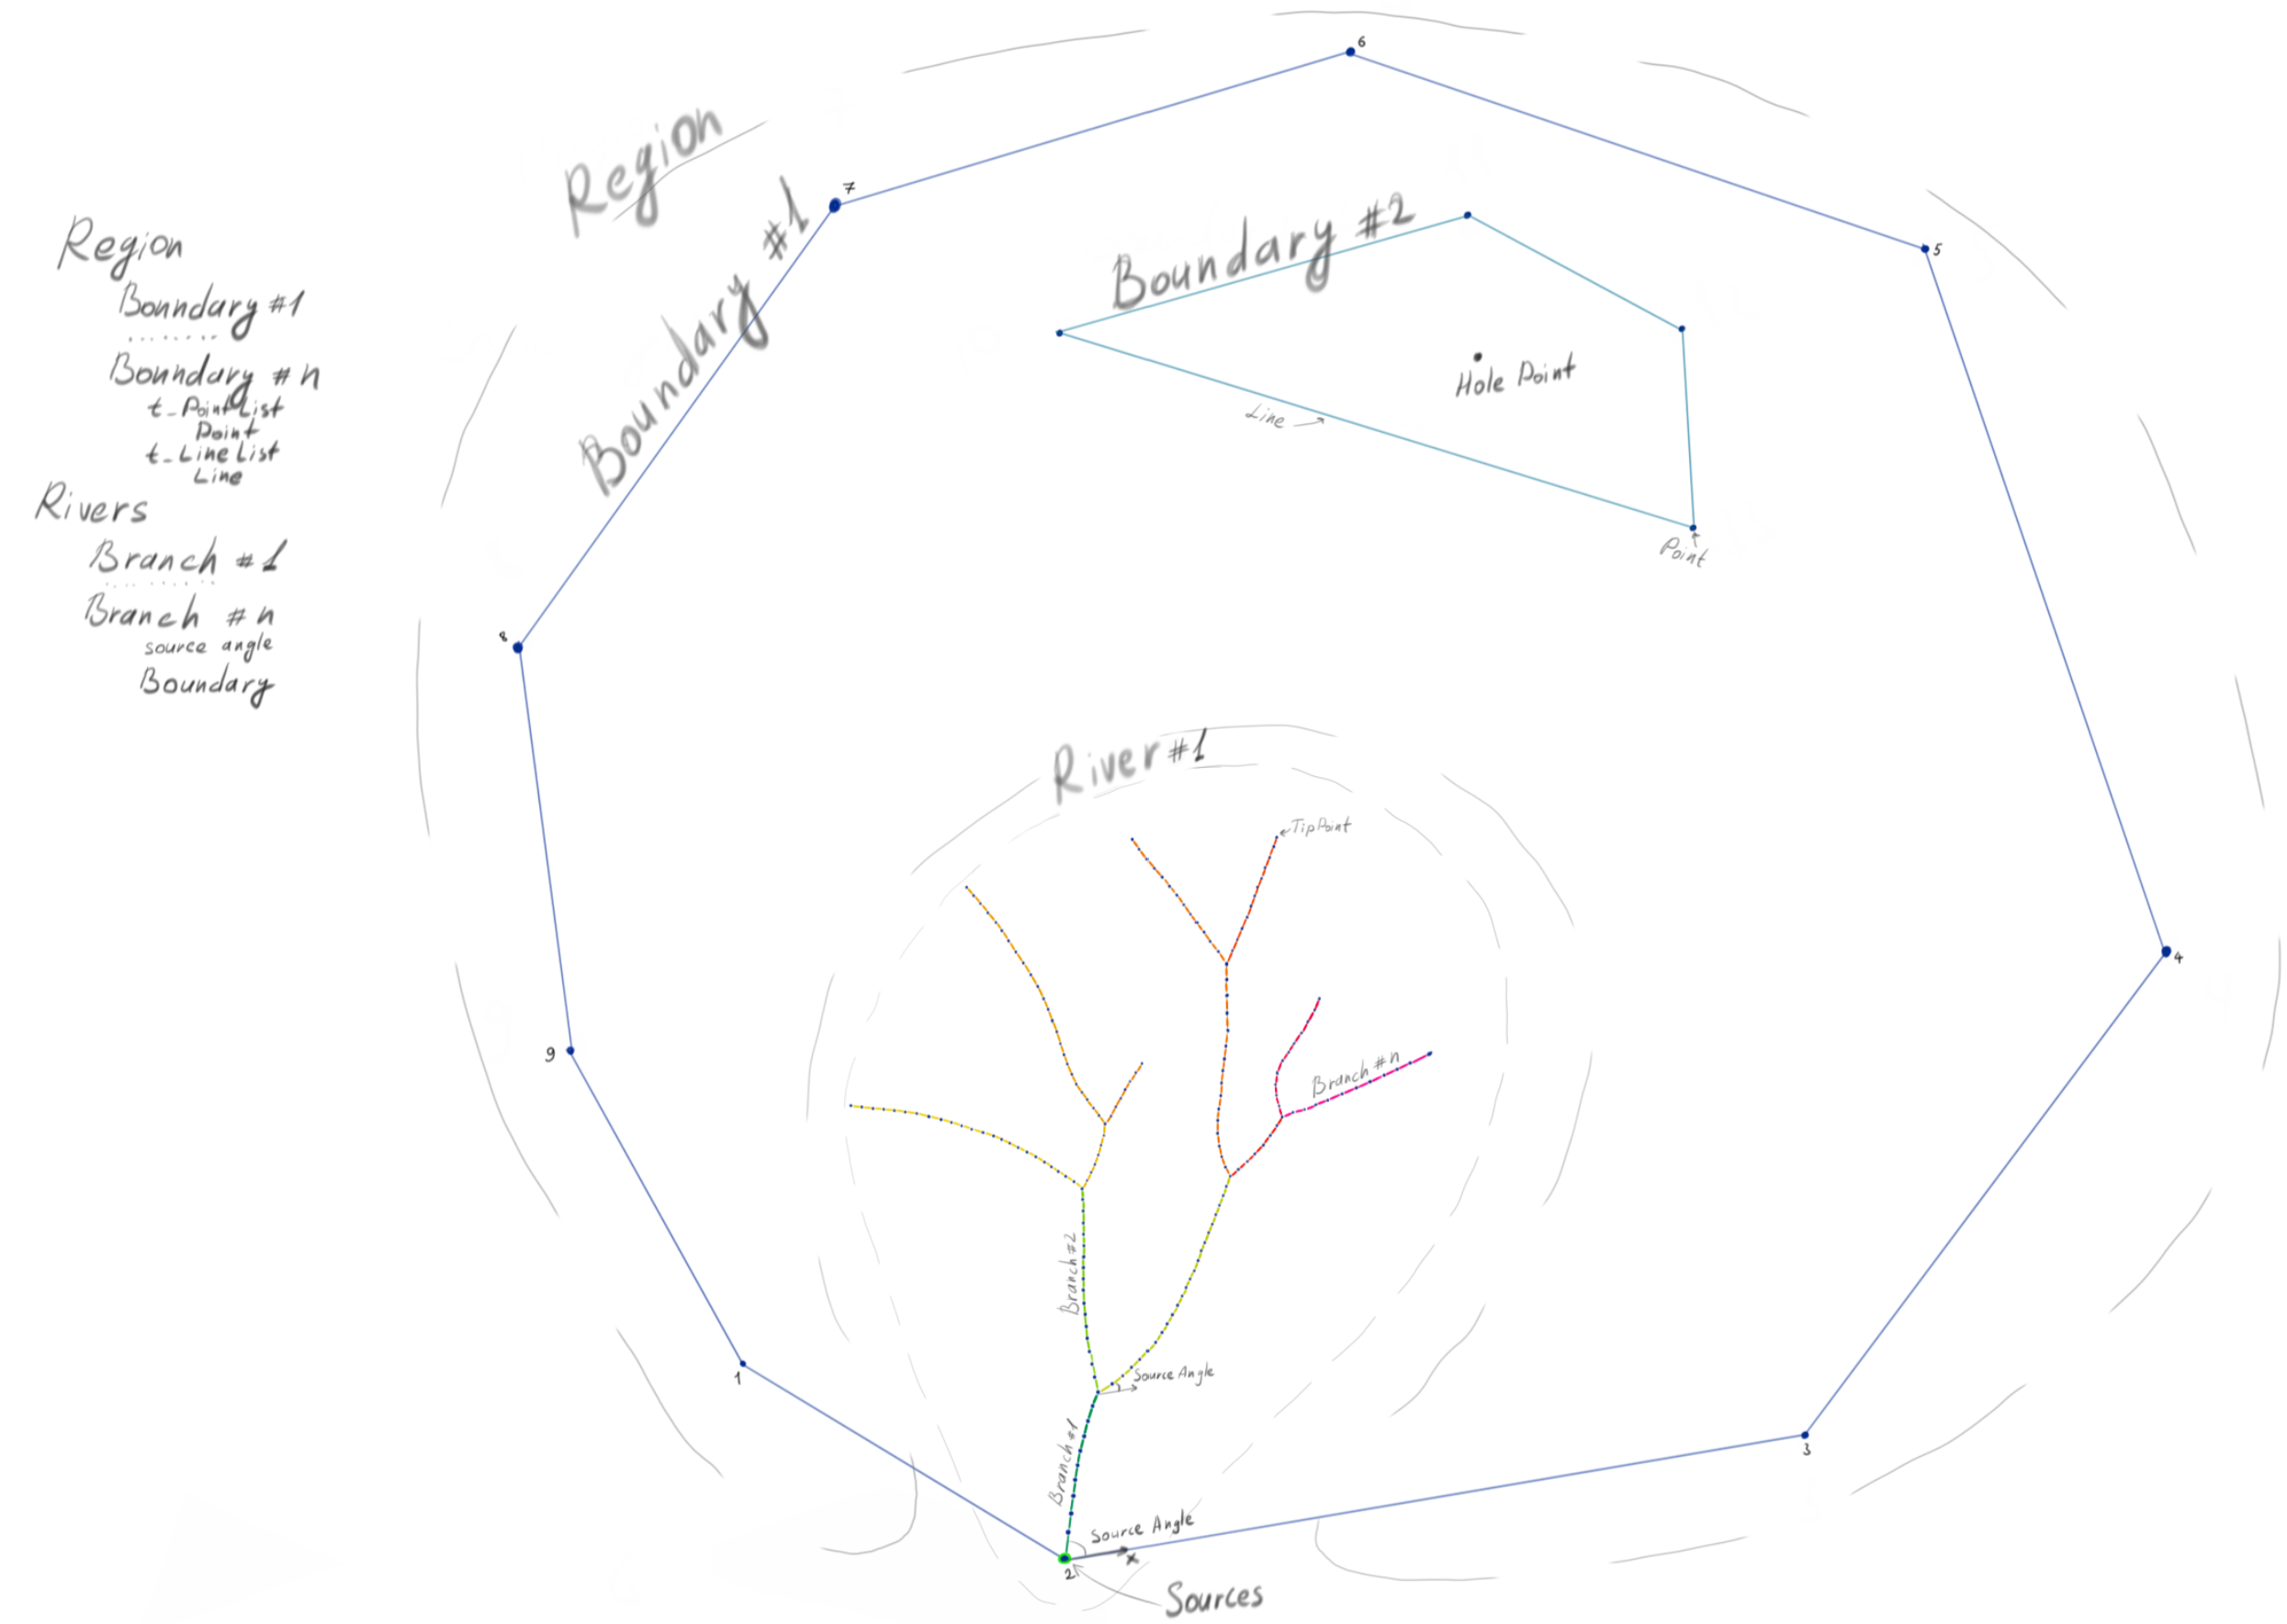 Region
Bonndary #1
.......
Bonndary #n
t_PointList
Point
t_LineList
Line
Rivers
Branch #1
.......
Branch #n
source angle
Boundary
Region
Boundary #1
6
7
5
Boundary #2
Hole Point
Line
Point
8
River #1
TipPoint
4
9
Branch #n
Branch #2
1
Source Angle
3
Branch #1
Source Angle
x
2
Sources